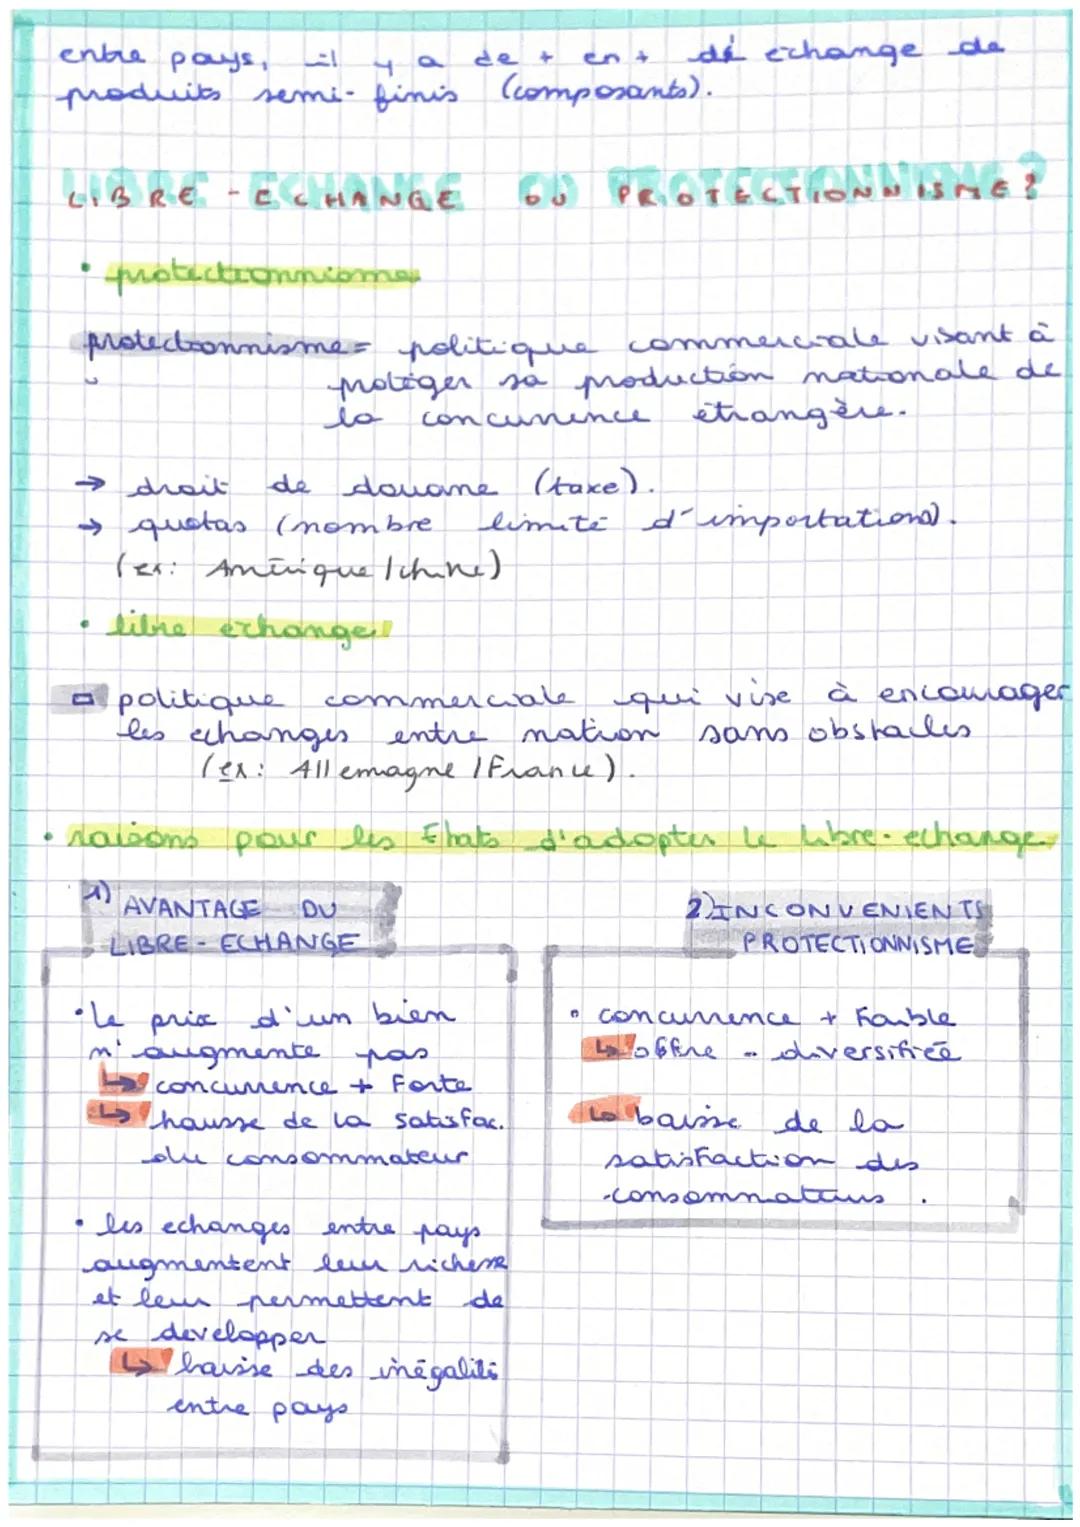 entre pays, il y a de + en + d'échange de
produits semi-finis (composants).
LIBRE-ECHANGE OU PROTECTIONNISME?
• protectionnisme
protectionnisme = politique commerciale visant à
protéger sa production nationale de
la concurrence étrangère.
→ droit de douane (taxe).
→ quotas (nombre limité d'importations).
(ex: Amérique / chine)
• libre echange
politique commerciale qui vise à encourager
les echanges entre nation sans obstacles
(ex: Allemagne / France).
• raisons pour les Etats d'adopter le libre-echange
1) AVANTAGE DU
LIBRE-ECHANGE
• le prix d'un bien
n'augmente pas
↳ concurrence + Forte
↳ hausse de la satisfac.
du consommateur
• les echanges entre pays
augmentent leur richesse
et leur permettent de
se developper
↳ baisse des inégalités
entre pays
2) INCONVENIENTS
PROTECTIONNISME
• concurrence + Faible
↳ offre - diversifiée
↳ baisse de la
satisfaction des
consommateurs.